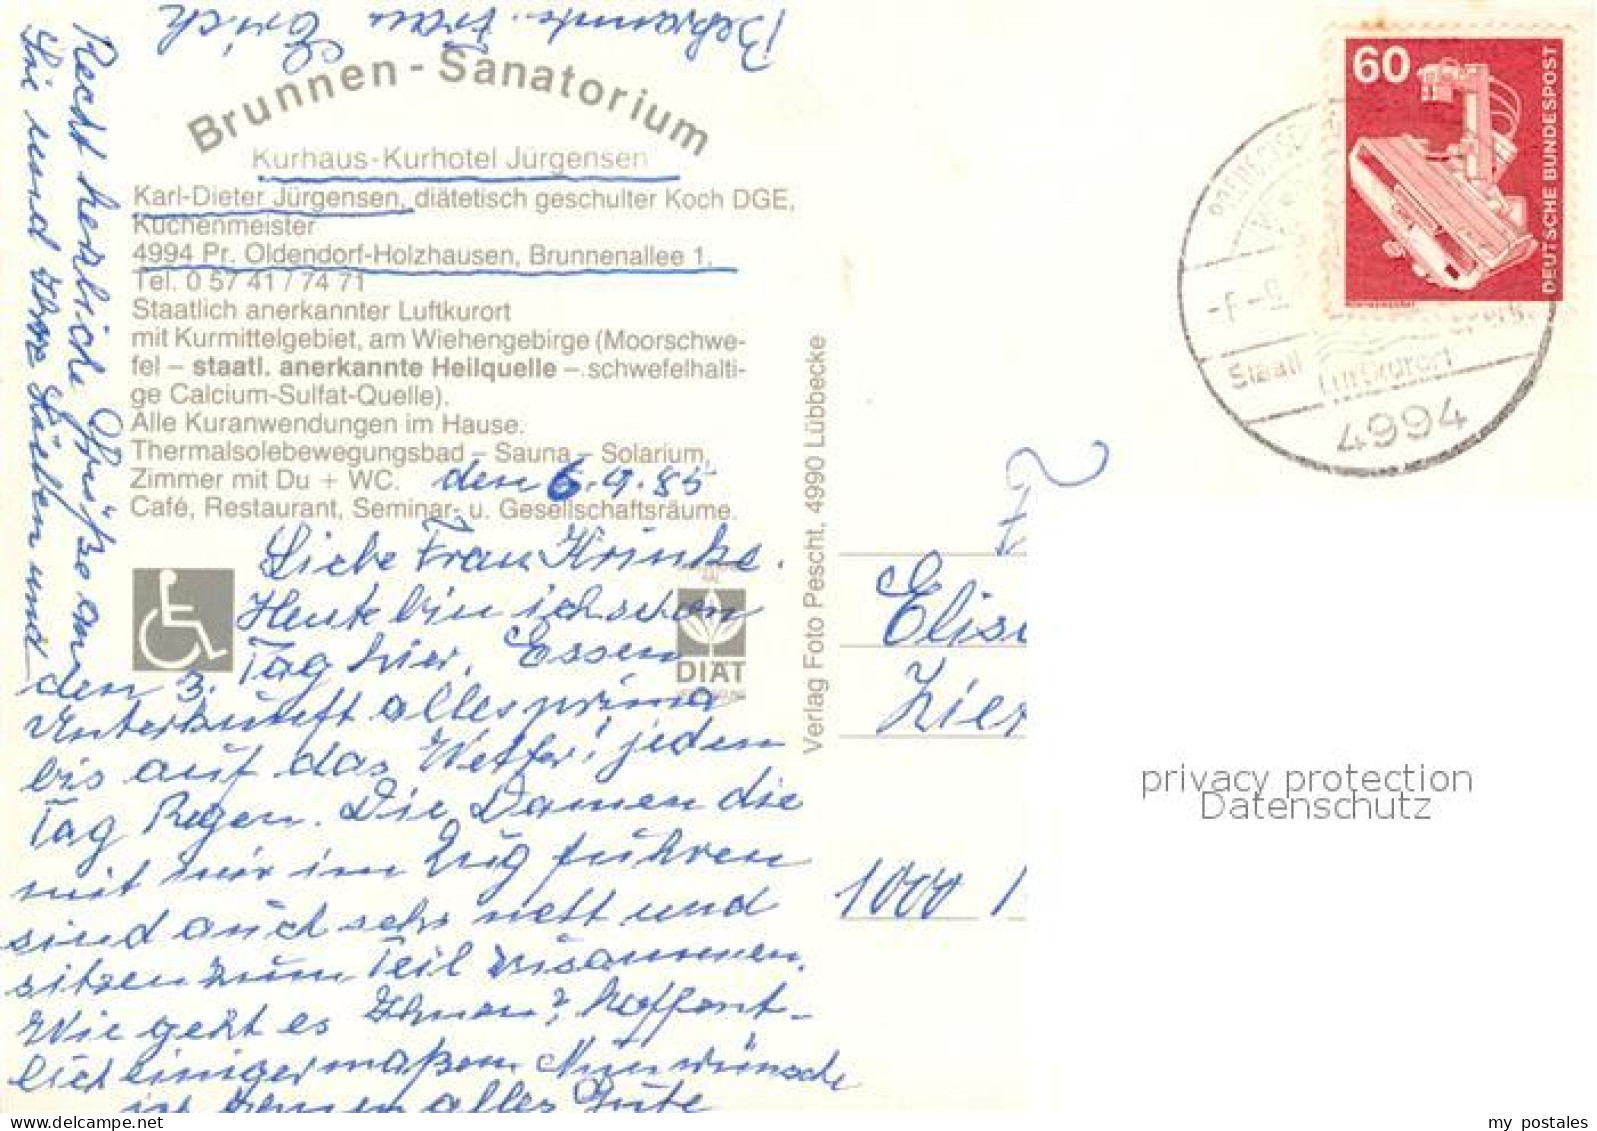 Brunnen-Sanatorium
Kurhaus-Kurhotel Jürgensen
Karl-Dieter Jürgensen, diätetisch geschulter Koch DGE,
Küchenmeister
4994 Pr. Oldendorf-Holzhausen, Brunnenallee 1.
Tel. 0 57 41 / 74 71
Staatlich anerkannter Luftkurort
mit Kurmittelgebiet, am Wiehengebirge (Moorschwe-
fel – staatl. anerkannte Heilquelle – schwefelhalti-
ge Calcium-Sulfat-Quelle).
Alle Kuranwendungen im Hause.
Thermalsolebewegungsbad – Sauna – Solarium,
Zimmer mit Du + WC.
Café, Restaurant, Seminar- u. Gesellschaftsräume.
den 6.9.85
Liebe Frau Krinke.
Heute bin ich schon
den 3. Tag hier. Essen
Unterkunft alles prima
bis auf das Wetter! jeden
Tag Regen. Die Damen die
mit mir im Zug fuhren
sind auch sehr nett und
sitzen zum Teil zusammen.
Wie geht es Ihnen? hoffent-
lich einigermaßen Nun wünsche
ich Ihnen alles Gute
Recht herzliche Grüße an
Sie und Ihre Lieben und
Bekannte. Frau Erich
DIÄT
Verlag Foto Pescht, 4990 Lübbecke
60
DEUTSCHE BUNDESPOST
Staatl
Luftkurort
4994
Elis
Zier
1000 1
privacy protection
Datenschutz
my postales